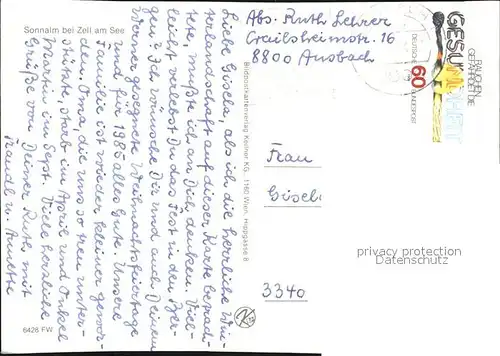 Sonnalm bei Zell am See
Liebe Gisela, als ich die herrliche Win-
terlandschaft auf dieser Karte betrach-
tete, mußte ich an Dich denken. Viel-
leicht verlebst Du das Fest in den Ber-
gen? Ich wünsche Dir und auch Deinem
Werner gesegnete Weihnachtsfeiertage
und für 1985 alles Gute. Unsere
Familie ist wieder kleiner gewor-
den. Oma, die uns so treu unter-
stützte, starb im April und Onkel
Martin im Sept. Viele herzliche
Grüße von Deiner Ruth, mit
Traudl u. Annette
6426 FW
Bildpostkartenverlag Kellner KG, 1160 Wien, Hippgasse 8
Abs. Ruth Lehrer
Crailsheimstr. 16
8800 Ansbach
RAUCHEN
GEFÄHRDET DIE
GESUNDHEIT
DEUTSCHE BUNDESPOST
60
Frau
Gisel
3340
privacy protection
Datenschutz